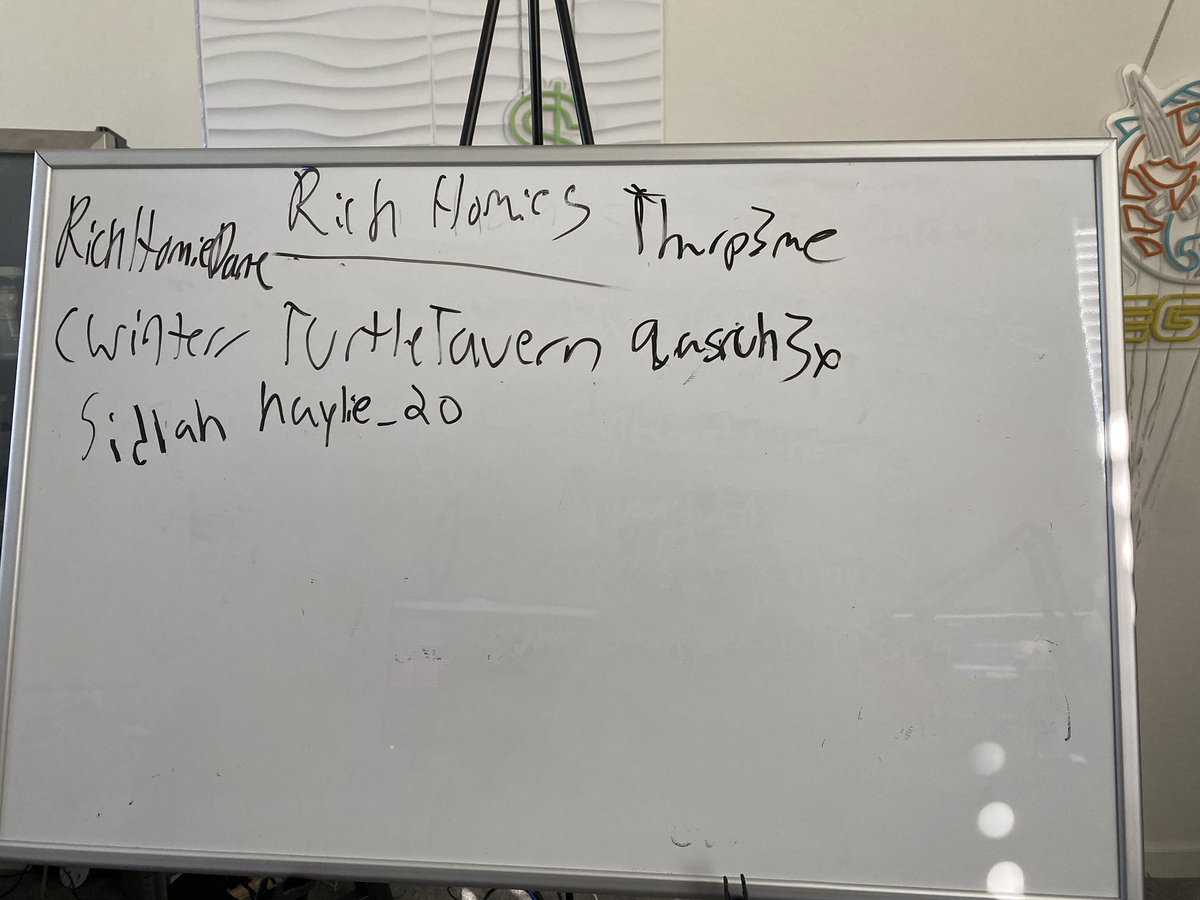 Rich Homies
RichHomieDave Thurp3me
Cwinterr TurtleTavern qasrch3x
Sidlah haylie_20
EG